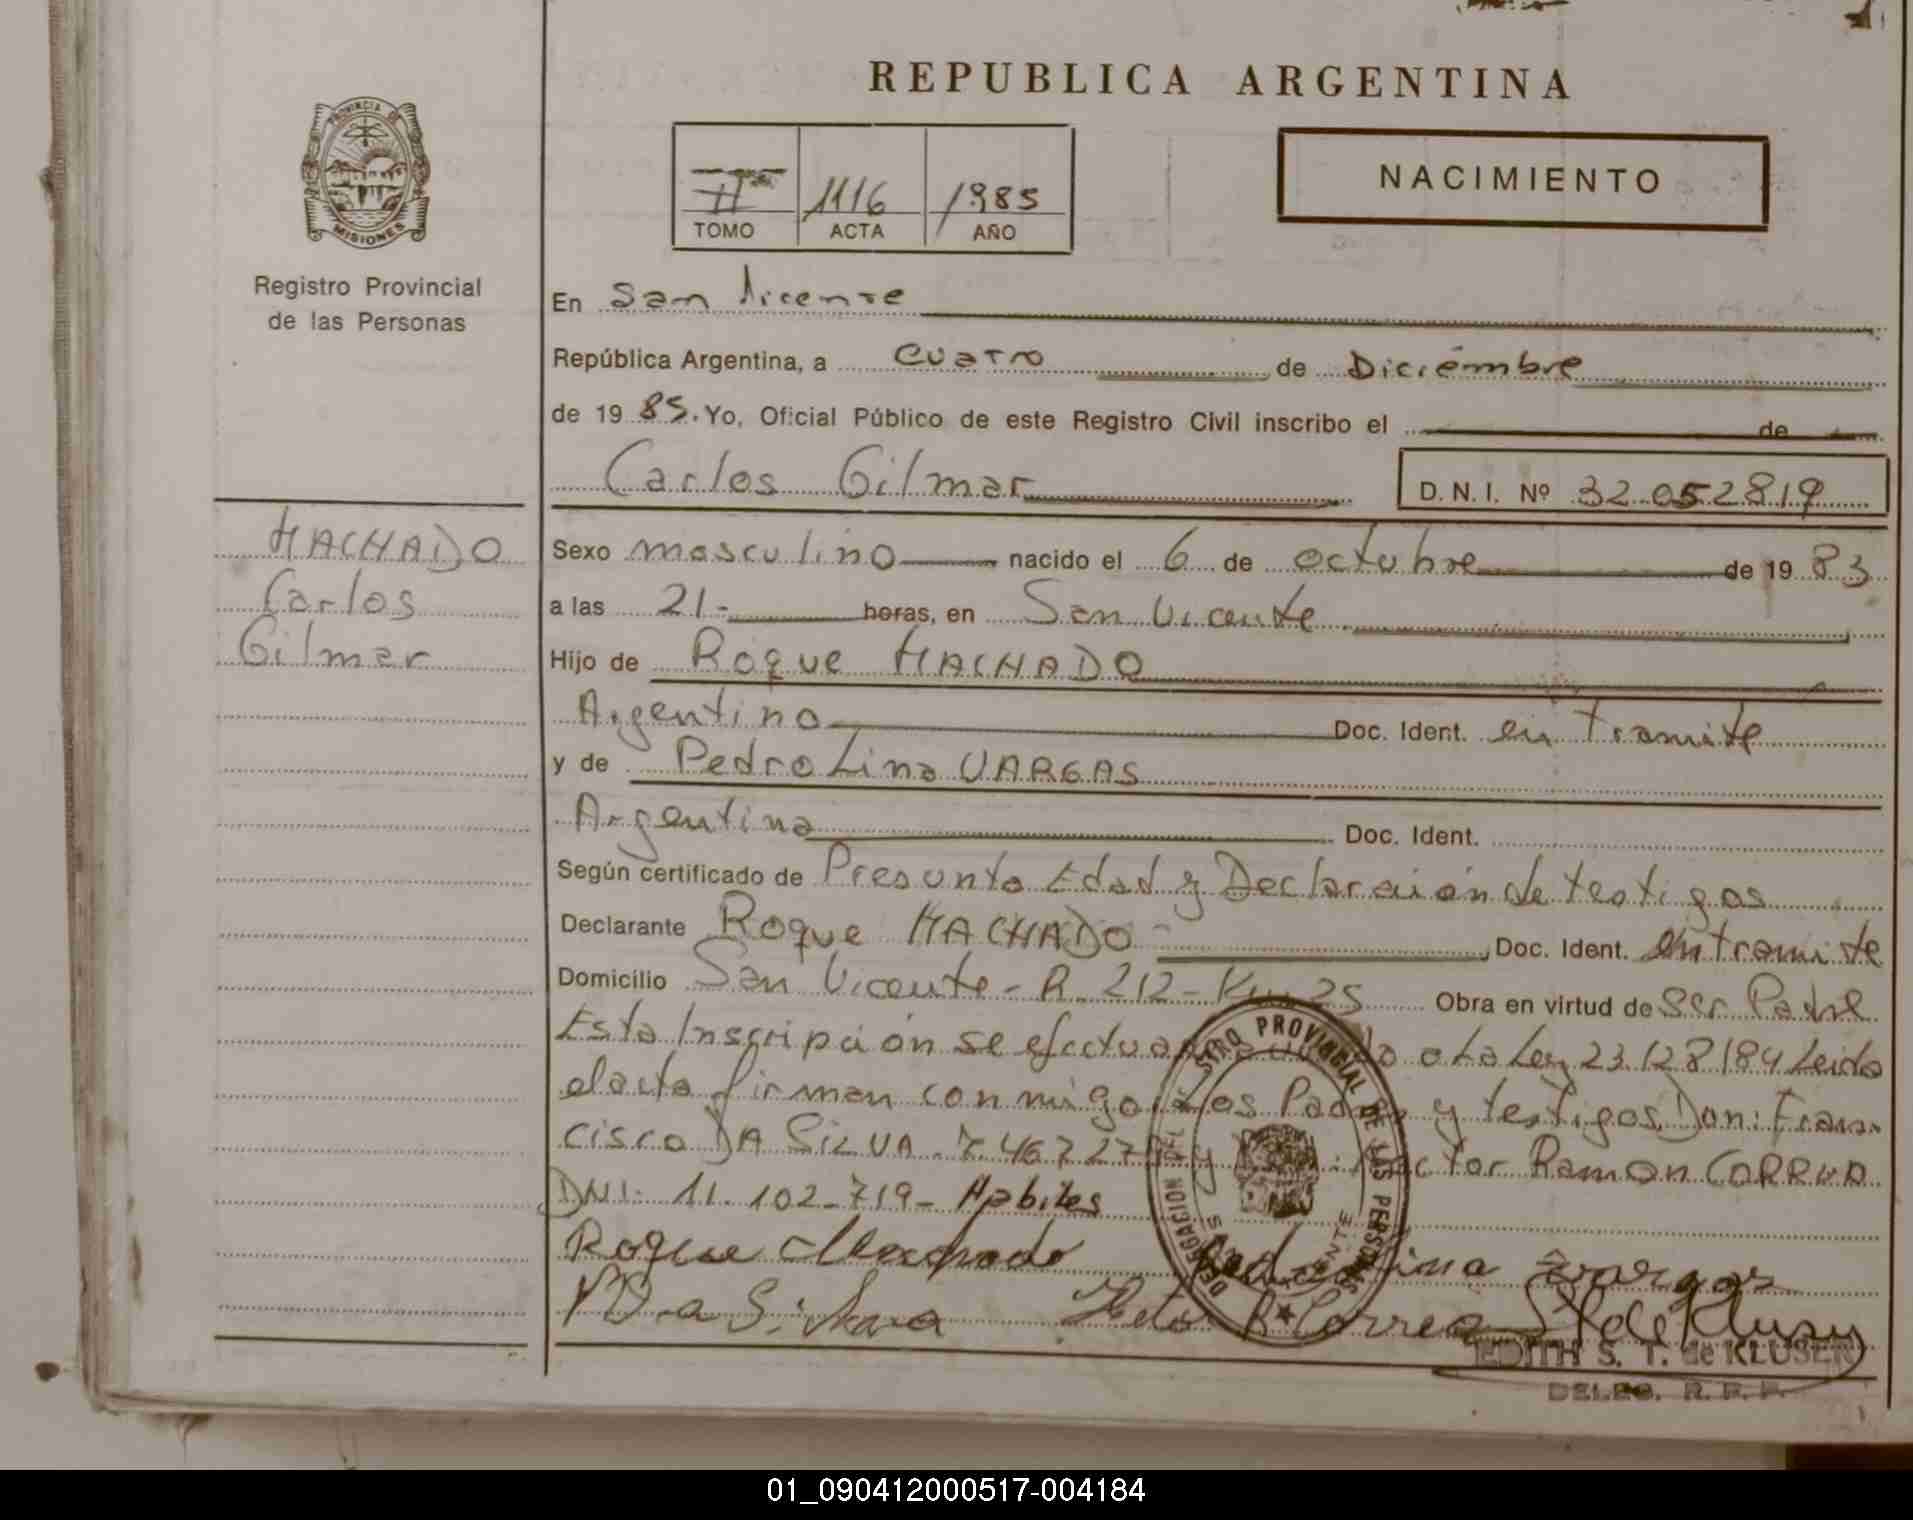 REPUBLICA ARGENTINA
PROVINCIA DE MISIONES
Registro Provincial
de las Personas
II 1116 1985
TOMO ACTA AÑO
NACIMIENTO
En San Vicente
República Argentina, a Cuatro de Diciembre
de 19 85. Yo, Oficial Público de este Registro Civil inscribo el de
Carlos Gilmar D.N.I. Nº 32 052819
MACHADO
Carlos
Gilmar
Sexo masculino nacido el 6 de octubre de 19 83
a las 21- horas, en San Vicente
Hijo de Roque MACHADO
Argentino Doc. Ident. en tramite
y de Pedrolina VARGAS
Argentina Doc. Ident.
Según certificado de Presunta Edad y Declaración de testigos
Declarante Roque MACHADO Doc. Ident. en tramite
Domicilio San Vicente - R. 212 - Km 25 Obra en virtud de ser Padre
Esta Inscripción se efectua a la Ley 23.128/84 Leido
el acta firman conmigo Los Padres y testigos Don: Fran
cisco DA SILVA. 7.467.27 y : Hector Ramon CORREA
DNI: 11.102-719- Habiles
Roque Machado Pedrolina Vargas
Da Silva Hector R Correa
DELEGACION DEL REGISTRO PROVINCIAL DE LAS PERSONAS
EDITH S. T. de KLUSER
DELEG. R. P. P.
01_090412000517-004184